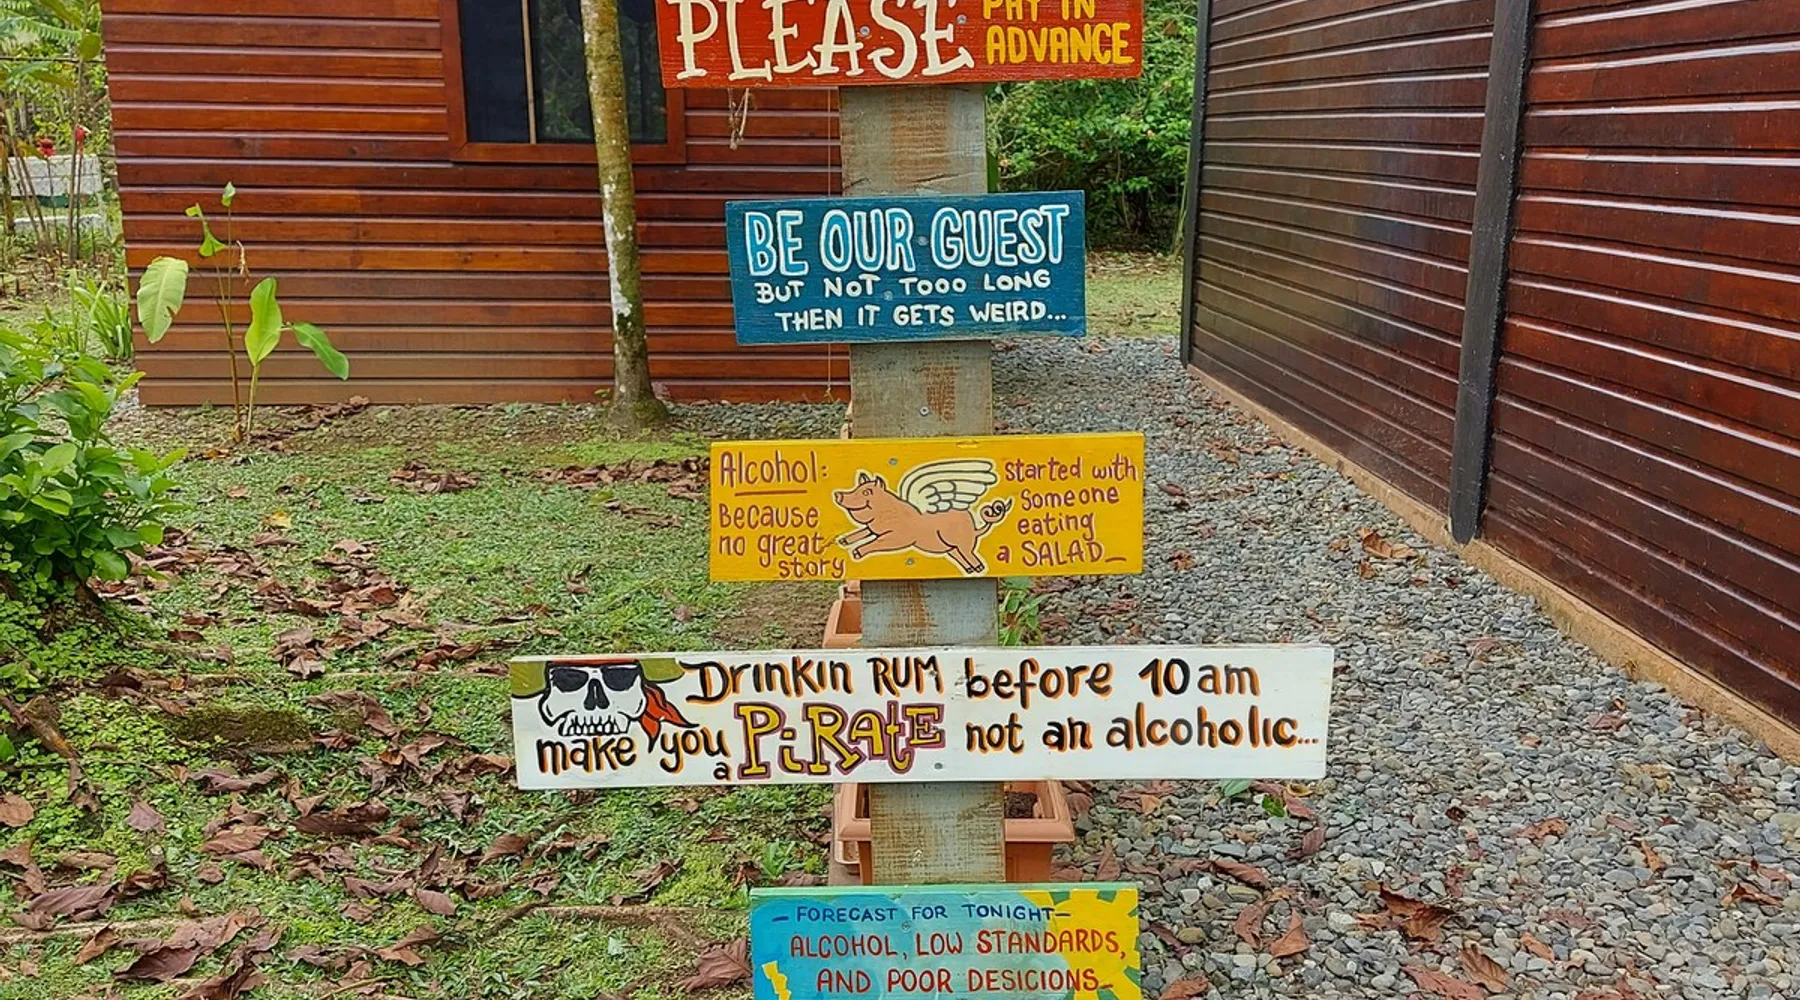 PLEASE PAY IN
ADVANCE
BE OUR GUEST
BUT NOT TOOO LONG
THEN IT GETS WEIRD...
Alcohol:
Because
no great
story
started with
someone
eating
a SALAD_
DRINKIN RUM before 10am
make you a PiRAtE not an alcoholic...
- FORECAST FOR TONIGHT-
ALCOHOL, LOW STANDARDS,
AND POOR DESICIONS_